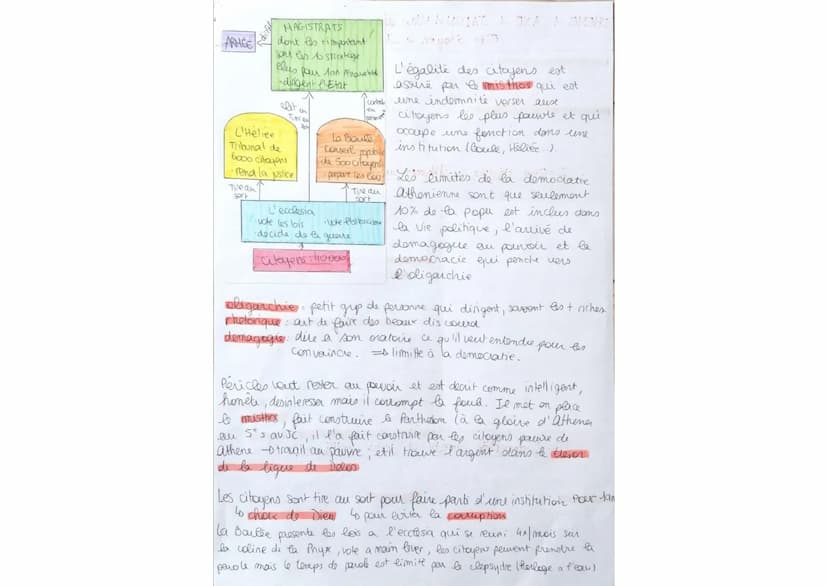 MAGISTRATS
dont les + important
sont les 10 stratège
élus pour 1 an
- dirigent l'État
ARMÉE
élit
L'Héliée
Tribunal de
6000 citoyens
- rend la justice
La Boulé
Conseil populaire
de 500 citoyens
- prépare les lois
Tire au
sort
Tire au
sort
L'ecclesia
- vote les lois
- décide de la guerre
- vote l'ostracisme
Citoyens : 40 000
L'égalité des citoyens est
assuré par le misthos qui est
une indemnité verser aux
citoyens les plus pauvre et qui
occupe une fonction dans une
institution (Boulé, Héliée..)
Les limites de la democratie
athenienne sont que seulement
10% de la popu est inclus dans
la vie politique, l'arrivé de
demagogue au pouvoir et la
democracie qui penche vers
l'oligarchie
oligarchie : petit grp de personne qui dirigent, souvent les + riches
rhetorique : art de faire des beaux discours
demagogie : dire a son oratoire ce qu'il veut entendre pour les
convaincre. => limite à la democratie.
Périclès veut rester au pouvoir et est décrit comme intelligent,
honête, desinteresser mais il corrompt la foule. Il met en place
le misthos, fait construire le Parthénon (à la gloire d'Athéna
au 5e s av JC, il l'a fait construire par les citoyens pauvre de
Athène -> travail au pauvre ; et il trouve l'argent dans le trésor
de la ligue de Délos
Les citoyens sont tiré au sort pour faire parti d'une institution pour 1 an
↳ choix de Dieu ↳ pour éviter la corruption
La Boulée presente les lois a l'ecclesia qui se réuni 4x/mois sur
la coline de la Pnyx, vote a main lever, les citoyens peuvent prendre la
parole mais le temps de parole est limité par la clepsydre (horloge a l'eau)